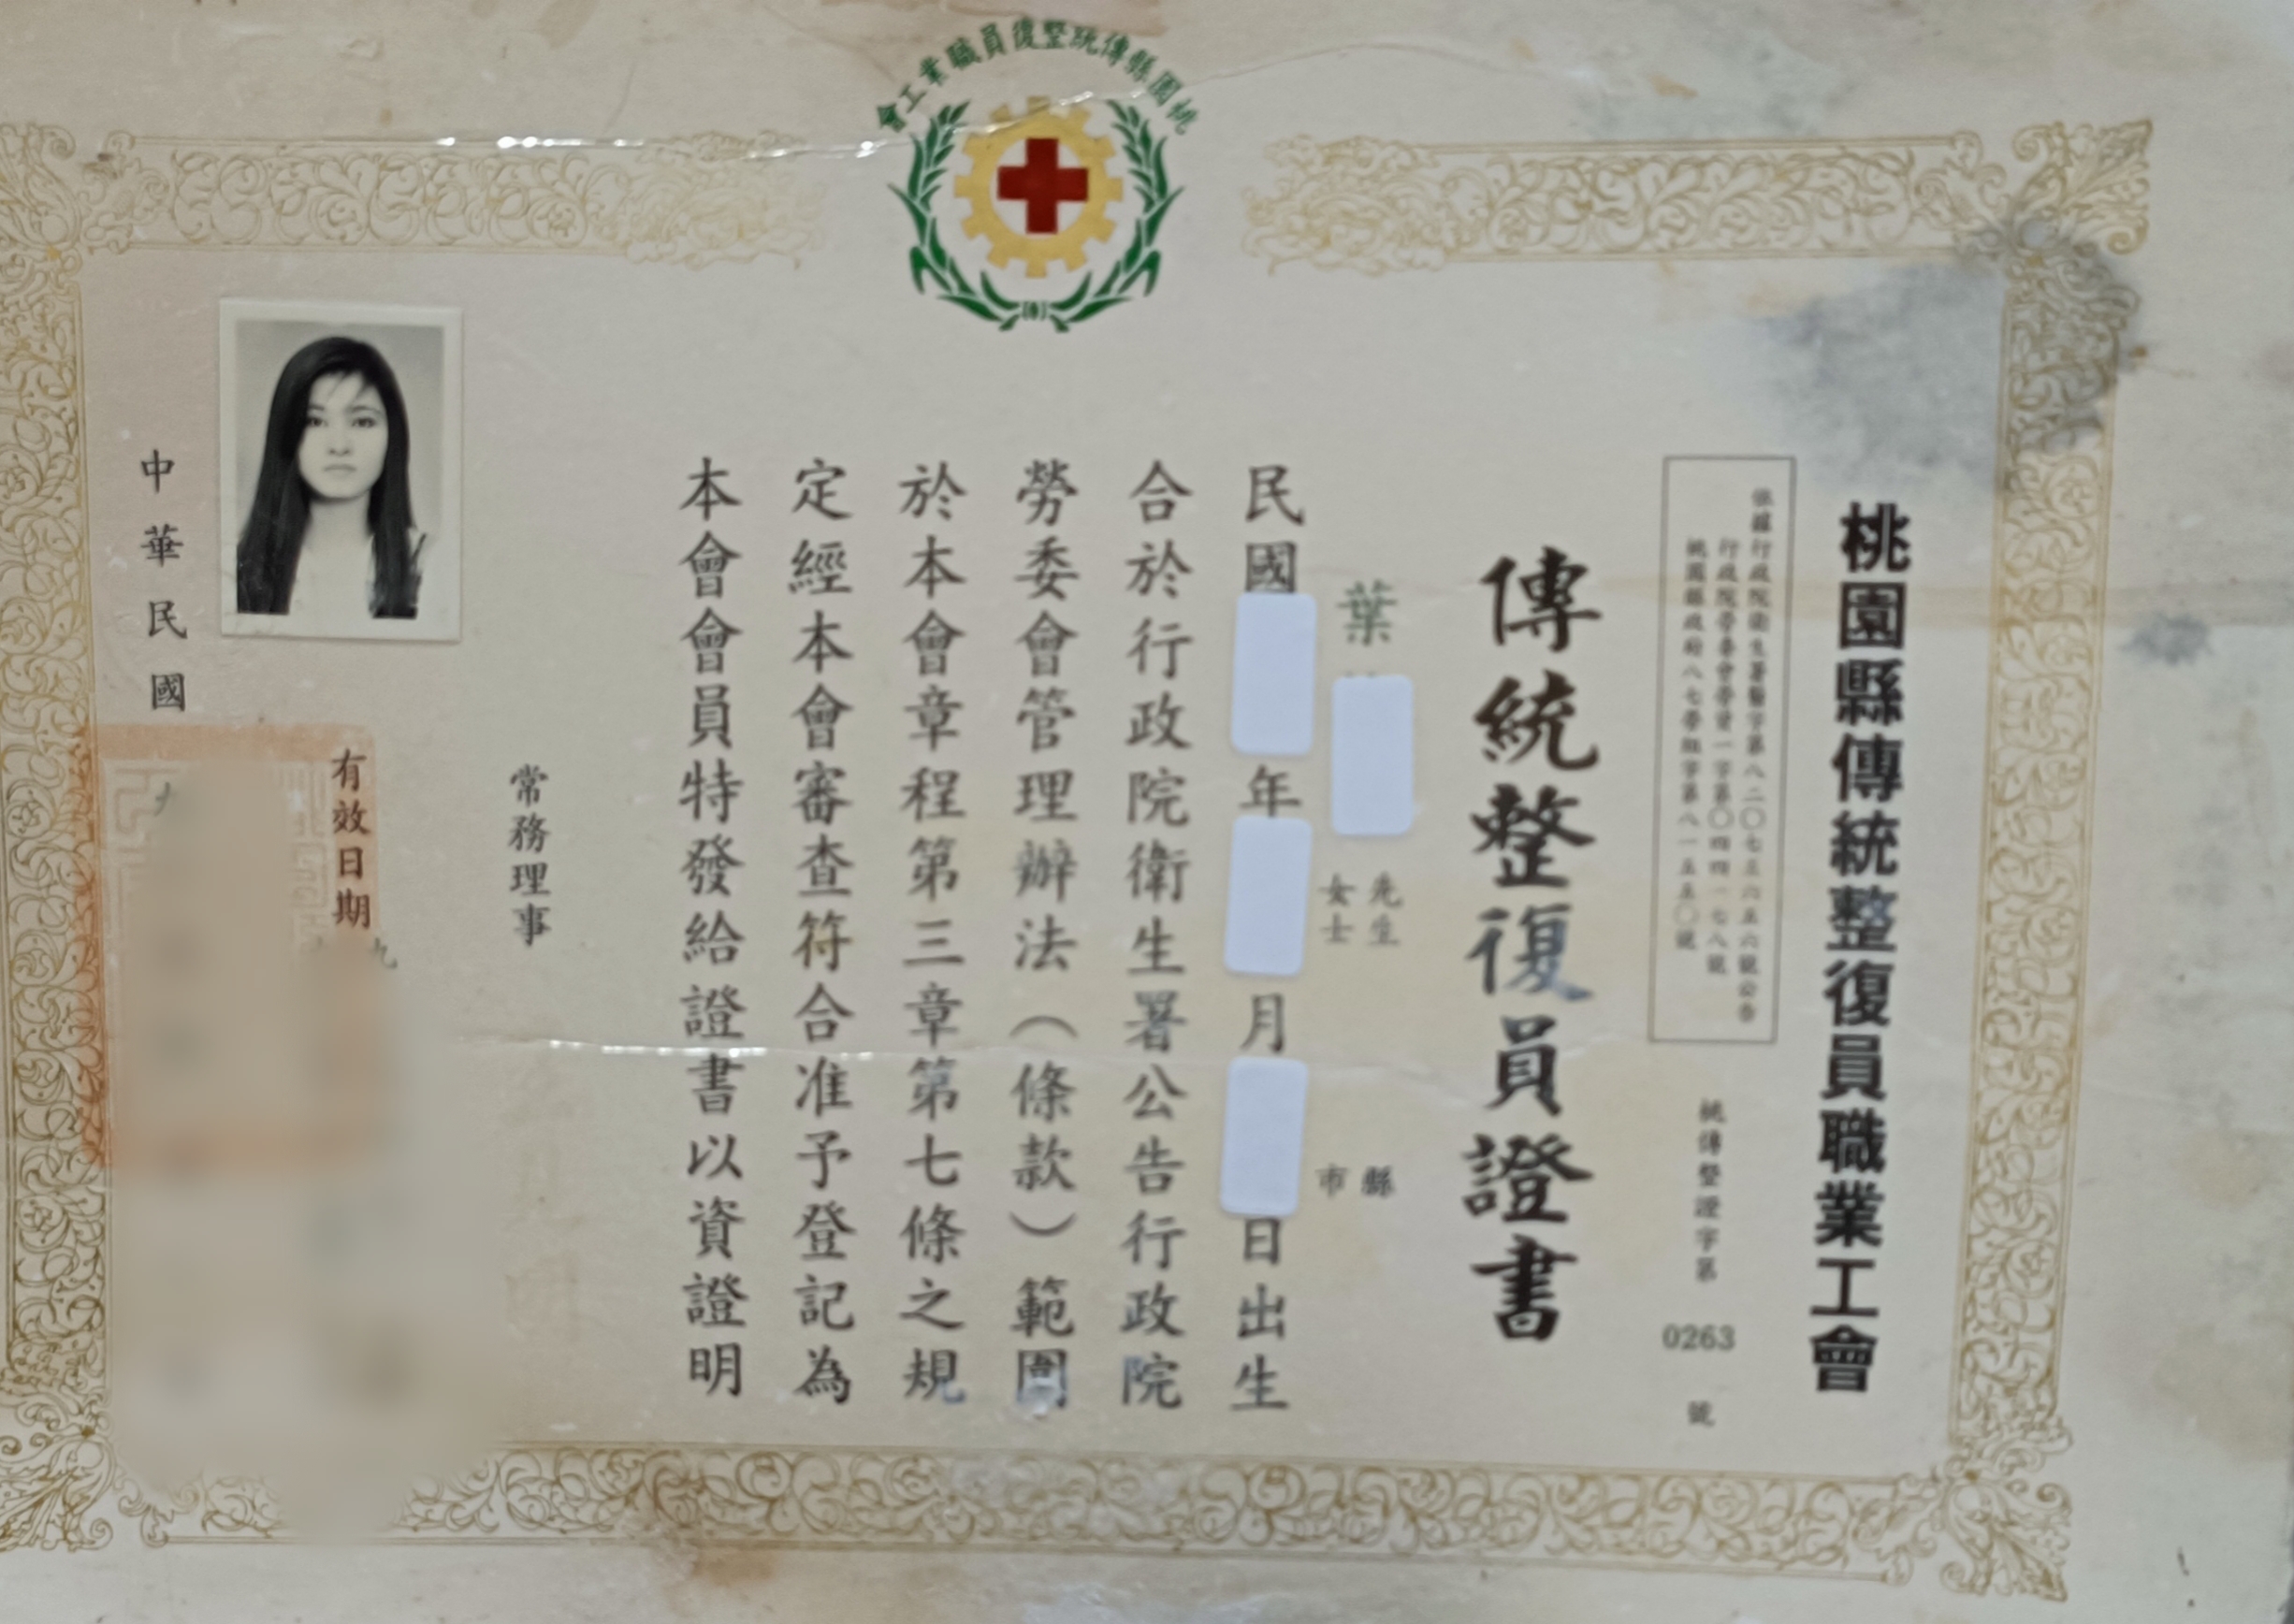 桃園縣傳統整復員職業工會
桃園縣傳統整復員職業工會
依據行政院衛生署醫字第八二〇七五六五六號公告
行政院勞委會勞資一字第〇四四一七八號
桃園縣政府八七勞組字第八一五五〇號
桃傳整證字第 0263 號
傳統整復員證書
葉 先生 女士 縣 市
民國 年 月 日出生
合於行政院衛生署公告行政院
勞委會管理辦法（條款）範圍
於本會章程第三章第七條之規
定經本會審查符合准予登記為
本會會員特發給證書以資證明
常務理事
有效日期 九
中華民國